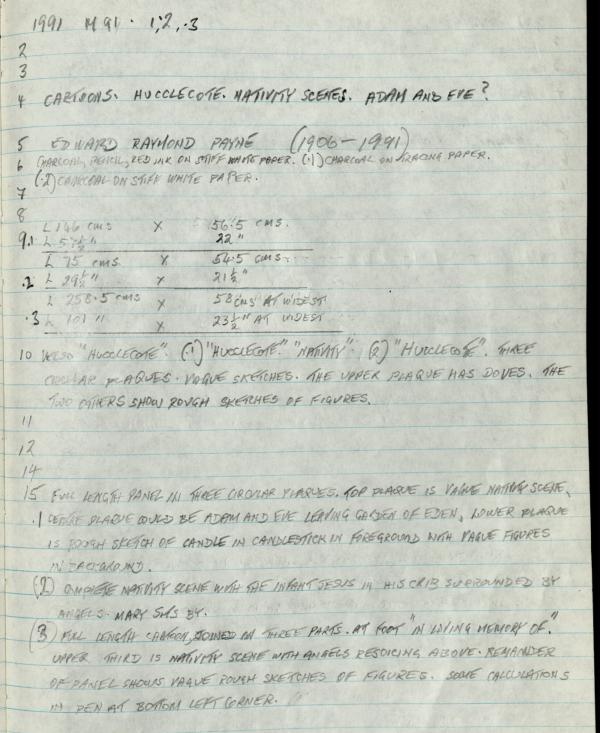 1991 M 91 · 1,2,·3
2
3
4 CARTOONS. HUCCLECOTE. NATIVITY SCENES. ADAM AND EVE?
5 EDWARD RAYMOND PAYNE (1906–1991)
6 CHARCOAL, PENCIL, RED INK ON STIFF WHITE PAPER. (·1) CHARCOAL ON TRACING PAPER.
(·2) CHARCOAL ON STIFF WHITE PAPER.
7
8
L 146 cms x 56·5 cms.
9.1 L 57½" 22"
L 75 cms x 54·5 cms.
.2 L 29½" x 21½"
L 258·5 cms x 58 cms AT WIDEST
.3 L 101 " x 23½" AT WIDEST
10 VERSO "HUCCLECOTE". (·1) "HUCCLECOTE" "NATIVITY". (2) "HUCCLECOTE". THREE
CIRCULAR PLAQUES. VAGUE SKETCHES. THE UPPER PLAQUE HAS DOVES. THE
TWO OTHERS SHOW ROUGH SKETCHES OF FIGURES.
11
12
14
15 FULL LENGTH PANEL IN THREE CIRCULAR PLAQUES. TOP PLAQUE IS VAGUE NATIVITY SCENE,
.1 CENTRE PLAQUE COULD BE ADAM AND EVE LEAVING GARDEN OF EDEN, LOWER PLAQUE
IS ROUGH SKETCH OF CANDLE IN CANDLESTICK IN FOREGROUND WITH VAGUE FIGURES
IN BACKGROUND.
(2) COMPLETE NATIVITY SCENE WITH THE INFANT JESUS IN HIS CRIB SURROUNDED BY
ANGELS. MARY SITS BY.
(3) FULL LENGTH CARTOON, JOINED IN THREE PARTS. AT FOOT "IN LOVING MEMORY OF".
UPPER THIRD IS NATIVITY SCENE WITH ANGELS REJOICING ABOVE. REMAINDER
OF PANEL SHOWS VAGUE ROUGH SKETCHES OF FIGURES. SOME CALCULATIONS
IN PEN AT BOTTOM LEFT CORNER.